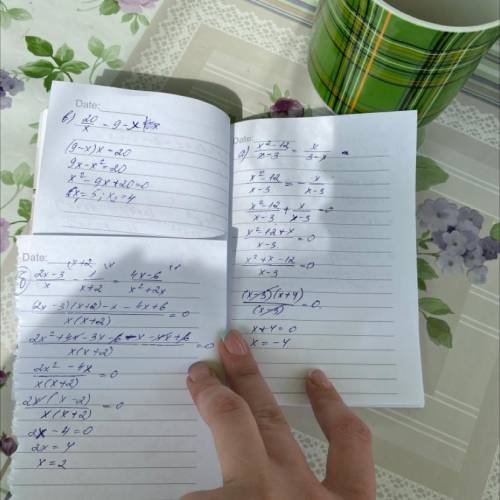 Date:
в) 20/x = 9-x
(9-x)x = 20
9x-x²=20
x²-9x+20=0
x₁=5; x₂=4
Date:
а) x²-12/x-3 = x/3-x
x²-12/x-3 = -x/x-3
x²-12/x-3 + x/x-3 = 0
x²-12+x/x-3 = 0
x²+x-12/x-3 = 0
(x-3)(x+4)/(x-3) = 0
x+4=0
x=-4
Date:
б) 2x-3/x - 1/x+2 = 4x-6/x²+2x
2x-3)(x+2)-x-4x+6/x(x+2) = 0
2x²+4x-3x-6-x-4x+6/x(x+2) = 0
2x²-4x/x(x+2) = 0
2x(x-2)/x(x+2) = 0
2x-4=0
2x=4
x=2